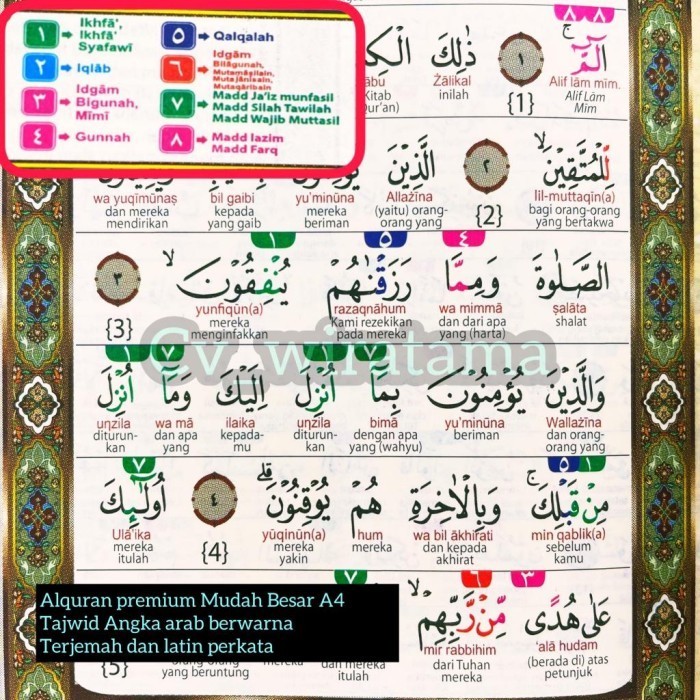 ١ Ikhfā', Ikhfā' Syafawī
٢ Iqlāb
٣ Idgām Bigunah, Mīmī
٤ Gunnah
٥ Qalqalah
٦ Idgām Bilāgunah, Mutamāṡilain, Mutajānisain, Mutaqāribain
٧ Madd Ja'iz munfasil Madd Silah Tawilah Madd Wajib Muttasil
٨ Madd lazim Madd Farq
٨ ٨
الٓمّٓ ۚ ١ ذٰلِكَ
Alif lām mīm. Żālikal
Alif Lām Mim {1} inilah
لِّلْمُتَّقِيْنَ ۙ ٢ الَّذِيْنَ
lil-muttaqīn(a) Allażīna yu'minūna bil gaibi wa yuqīmūnaṣ
bagi orang-orang yang bertakwa {2} (yaitu) orang-orang yang mereka beriman kepada yang gaib dan mereka mendirikan
٤ ٥ ١
الصَّلٰوةَ وَمِمَّا رَزَقْنٰهُمْ يُنْفِقُوْنَ ۙ ٣
ṣalāta wa mimmā razaqnāhum yunfiqūn(a)
shalat dan dari apa yang (harta) Kami rezekikan pada mereka mereka menginfakkan {3}
Cv_wiratama
٧ ١ ٧ ١
وَالَّذِيْنَ يُؤْمِنُوْنَ بِمَآ اُنْزِلَ اِلَيْكَ وَمَآ اُنْزِلَ
Wallażīna yu'minūna bimā unzila ilaika wa mā unzila
dan orang-orang beriman dengan apa yang (wahyu) diturun-kan kepada-mu dan apa yang diturun-kan
١ ٥ ٧
مِنْ قَبْلِكَ ۚ وَبِالْاٰخِرَةِ هُمْ يُوْقِنُوْنَ ۗ ٤ اُولٰۤىِٕكَ
min qablik(a) wa bil ākhirati hum yūqinūn(a) Ulā'ika
sebelum kamu dan kepada akhirat mereka mereka yakin {4} mereka itulah
٣ ٦ ٧
عَلٰى هُدًى مِّنْ رَّبِّهِمْ ۙ
'alā hudam mir rabbihim
(berada di) atas petunjuk dari Tuhan mereka dan mereka itulah mereka yang beruntung {5}
Alquran premium Mudah Besar A4
Tajwid Angka arab berwarna
Terjemah dan latin perkata